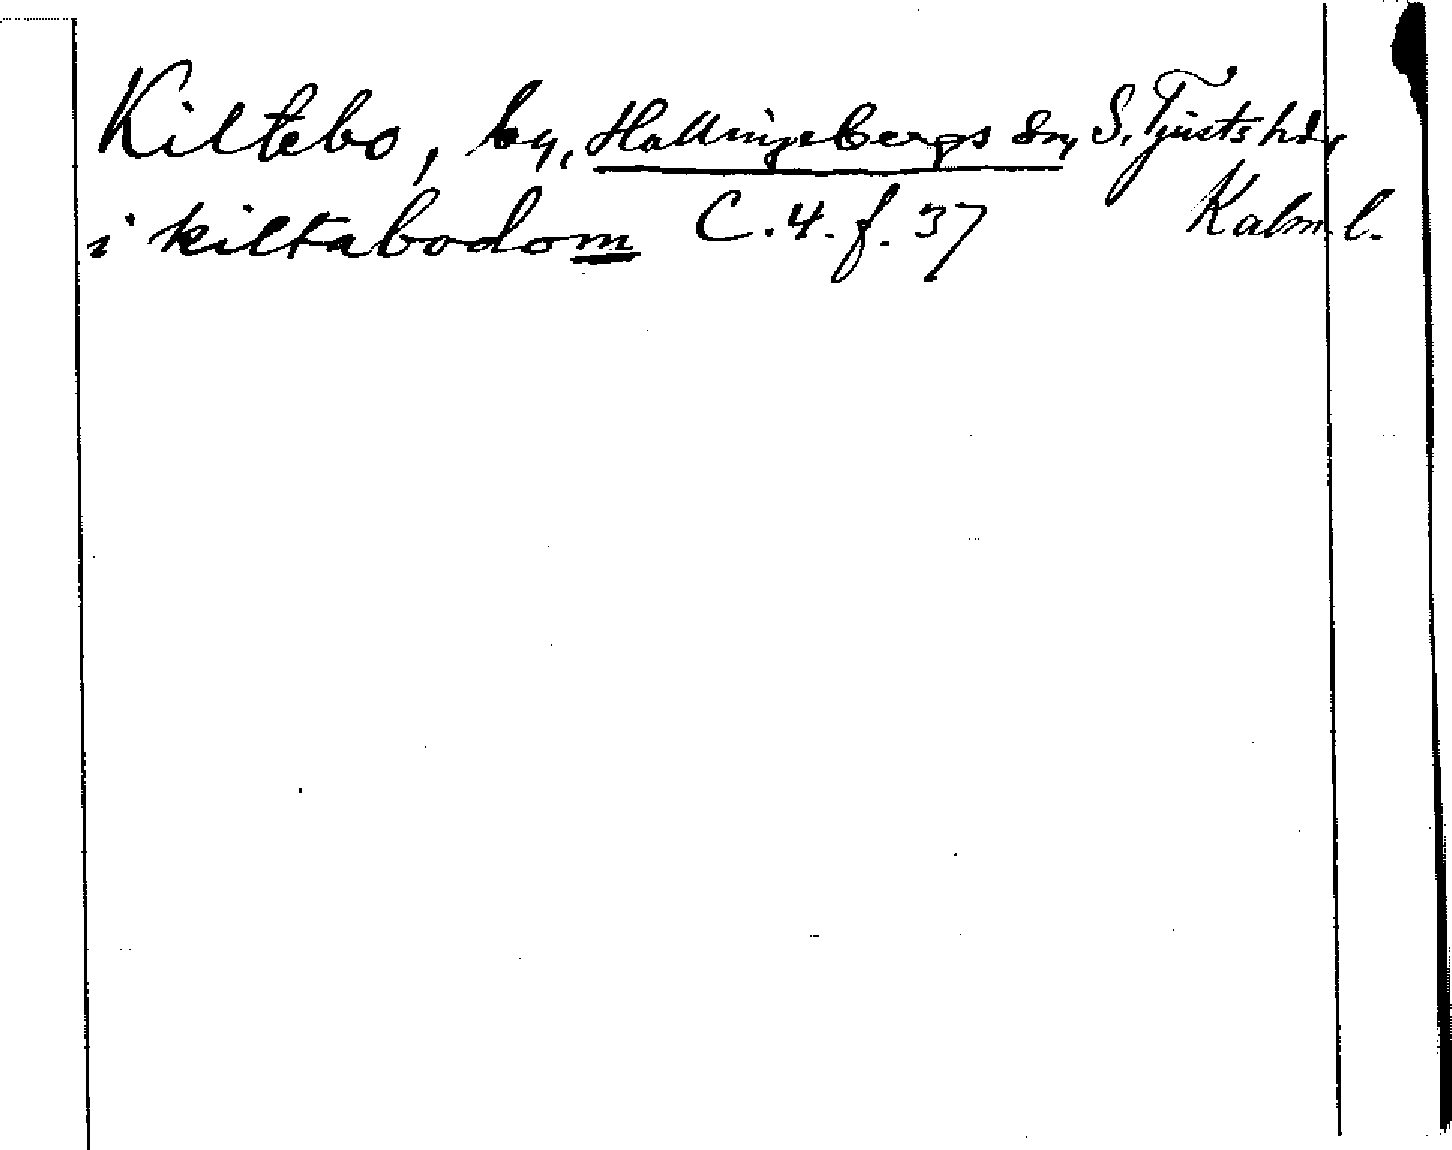 Kiltebo, by, Hallingebergs sn, S. Tjusts hd,
Kalm. l.
i kiltabodom C. 4. f. 37